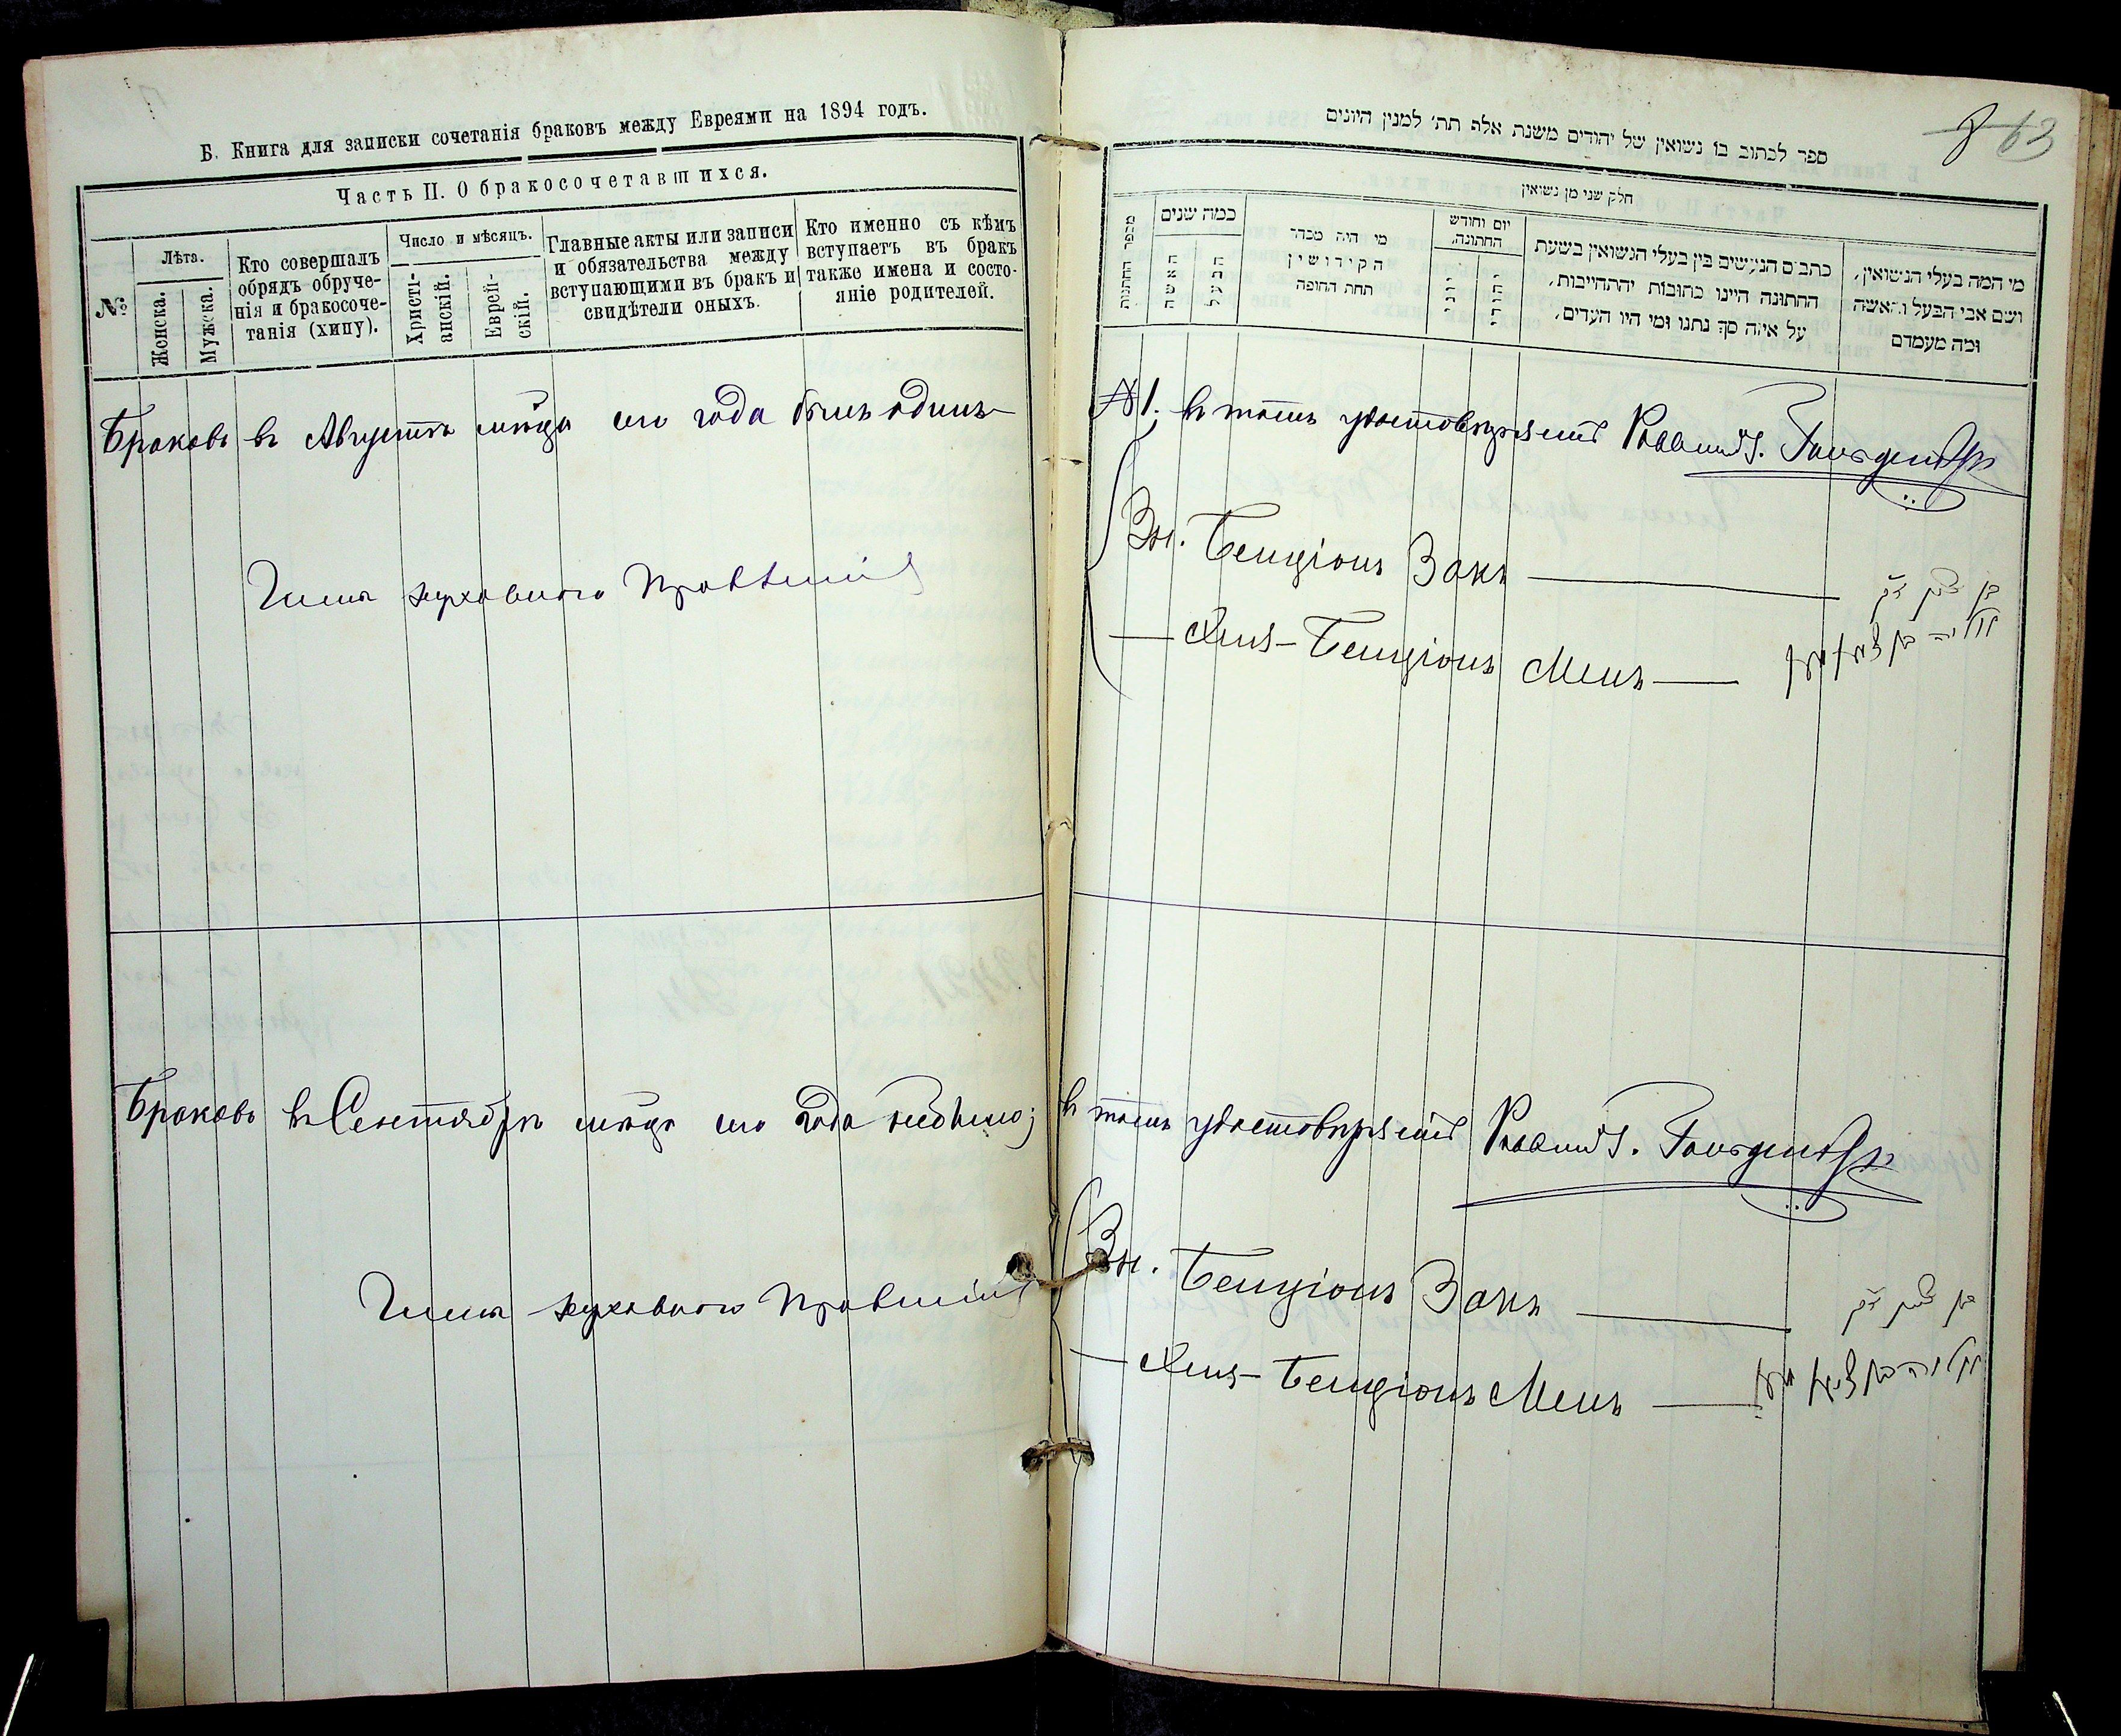 Б. Книга для записки сочетанія браковъ между Евреями на 1894 годъ.
Часть II. О бракосочетавшихся.
№
Лѣта.
Женска.
Мужска.
Кто совершалъ
обрядъ обруче-
нія и бракосоче-
танія (хипу).
Число и мѣсяцъ.
Христі-
анскій.
Еврей-
скій.
Главные акты или записи
и обязательства между
вступающими въ бракъ и
свидѣтели оныхъ.
Кто именно съ кѣмъ
вступаетъ въ бракъ
также имена и состо-
яніе родителей.
Браковъ въ Августѣ мѣсяцѣ сего года былъ одинъ
Члены духовнаго Правленія
Браковъ въ Сентябрѣ мѣсяцѣ сего года небыло;
Члены духовнаго Правленія
ספר לכתוב בו נשואין של יהודים משנת אלף תת׳ למנין היונים
63
חלק שני מן נשואין
מספר החתונות
כמה שנים
האשה
הבעל
מי היה מסדר
הקידושין
תחת החופה
יום וחודש
החתונה,
יוני
יהודי
כתבים הנעשים בין בעלי הנשואין בשעת
החתונה היינו כתובות והתחייבות,
על איזה סך נתנו ומי היו העדים,
מי המה בעלי הנשואין,
ושם אבי הבעל והאשה
ומה מעמדם
№ 1. въ томъ удостовѣряемъ Раввинъ
Бенціонъ Закъ
בן ציון זק
Бенціонъ Менъ
въ томъ удостовѣряемъ Раввинъ
Бенціонъ Закъ
בן ציון זק
Бенціонъ Менъ